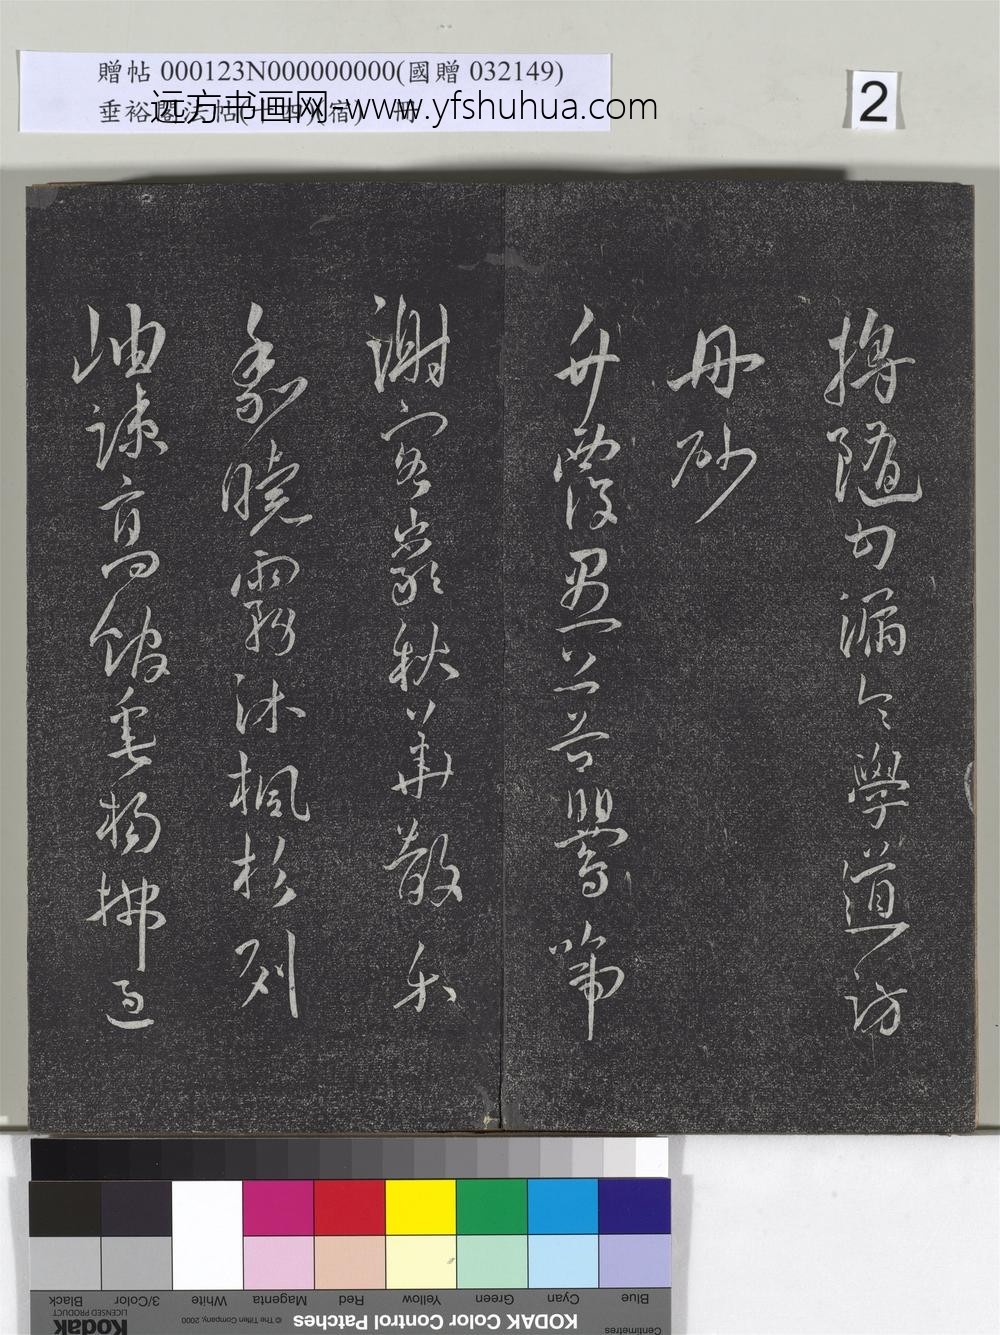 贈帖 000123N000000000(國贈 032149)
垂裕閣法帖(十四)(宿) 冊
远方书画网-www.yfshuhua.com
2
將随勾漏令學道訪
丹砂
鸎啼
謝 秋華散禾
黍曉霧沐楓杉列
岫疎高館垂楊拂過
Blue Cyan Green Yellow Red Magenta White 3/Color Black
Centimetres
KODAK Color Control Patches
© The Tiffen Company, 2000
Kodak
LICENSED PRODUCT